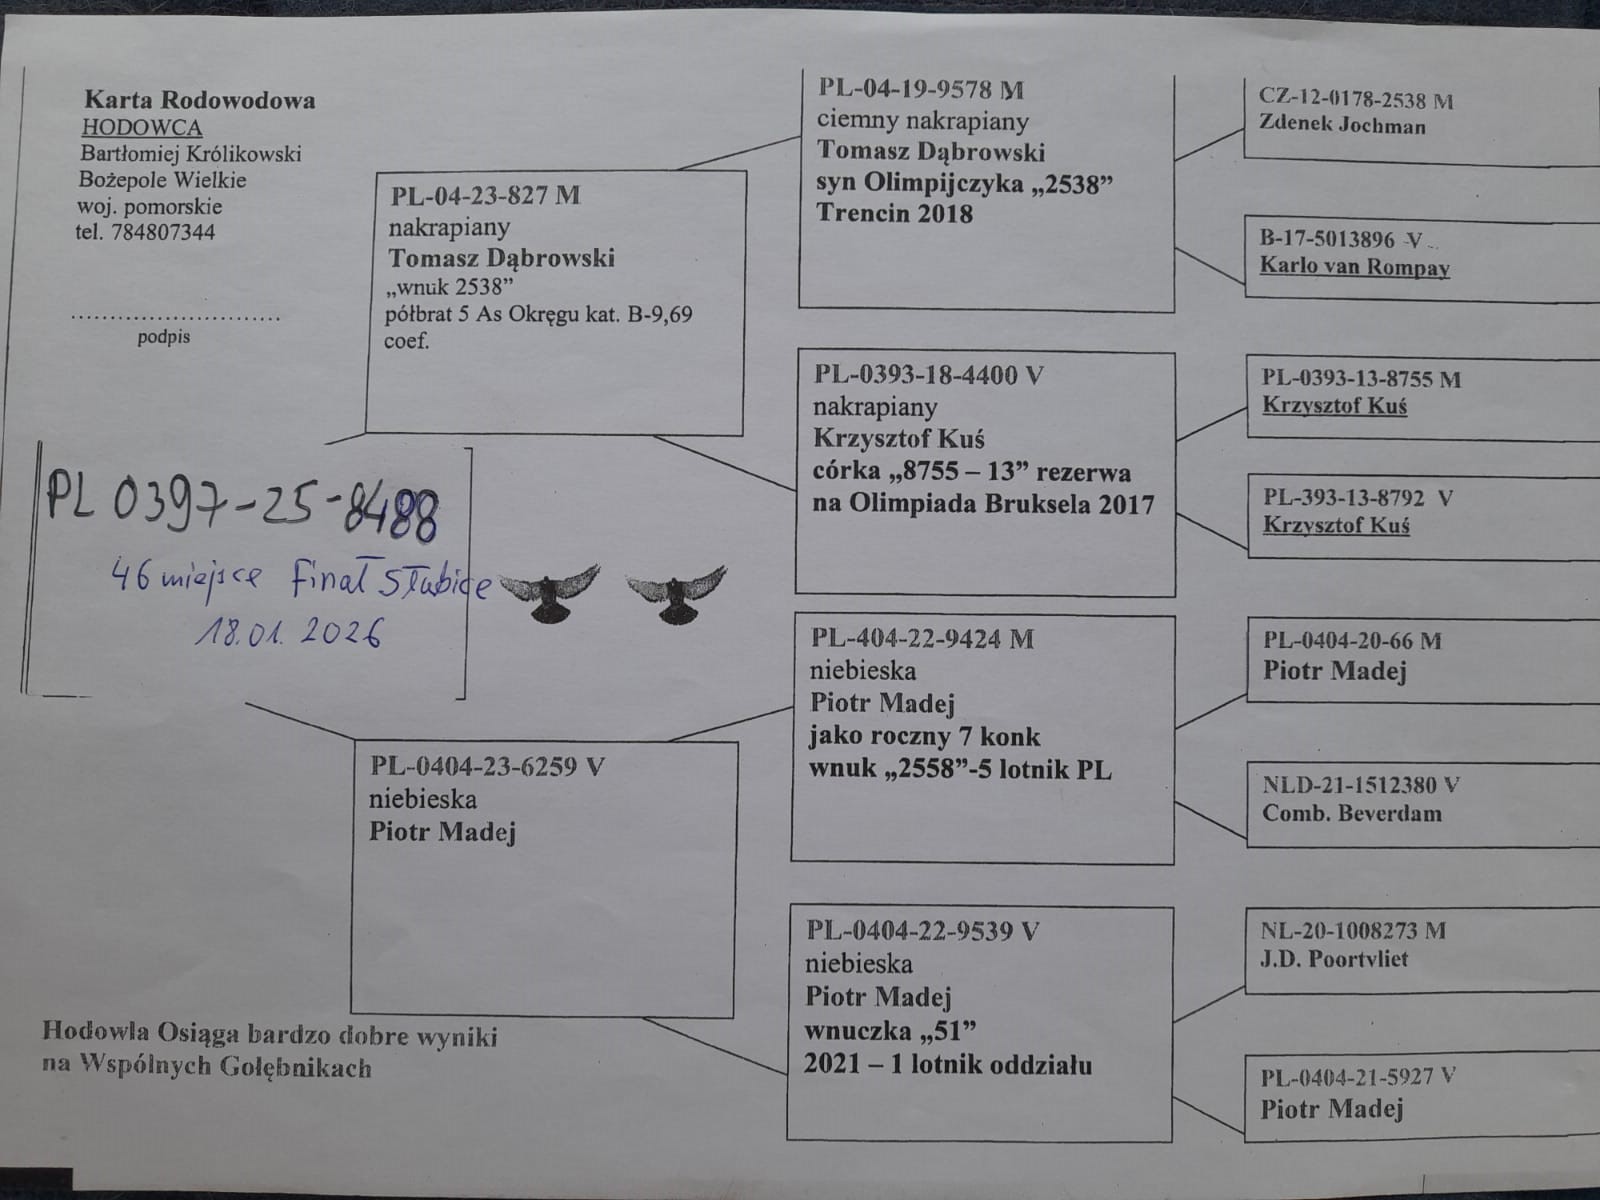 Karta Rodowodowa
HODOWCA
Bartłomiej Królikowski
Bożepole Wielkie
woj. pomorskie
tel. 784807344
..............................
podpis
PL 0397-25-8488
46 miejsce Finał Słubice
18.01.2026
PL-04-23-827 M
nakrapiany
Tomasz Dąbrowski
„wnuk 2538”
półbrat 5 As Okręgu kat. B-9,69
coef.
PL-0404-23-6259 V
niebieska
Piotr Madej
PL-04-19-9578 M
ciemny nakrapiany
Tomasz Dąbrowski
syn Olimpijczyka „2538”
Trencin 2018
PL-0393-18-4400 V
nakrapiany
Krzysztof Kuś
córka „8755 – 13” rezerwa
na Olimpiada Bruksela 2017
PL-404-22-9424 M
niebieska
Piotr Madej
jako roczny 7 konk
wnuk „2558”-5 lotnik PL
PL-0404-22-9539 V
niebieska
Piotr Madej
wnuczka „51”
2021 – 1 lotnik oddziału
CZ-12-0178-2538 M
Zdenek Jochman
B-17-5013896 V
Karlo van Rompay
PL-0393-13-8755 M
Krzysztof Kuś
PL-393-13-8792 V
Krzysztof Kuś
PL-0404-20-66 M
Piotr Madej
NLD-21-1512380 V
Comb. Beverdam
NL-20-1008273 M
J.D. Poortvliet
PL-0404-21-5927 V
Piotr Madej
Hodowla Osiąga bardzo dobre wyniki
na Wspólnych Gołębnikach